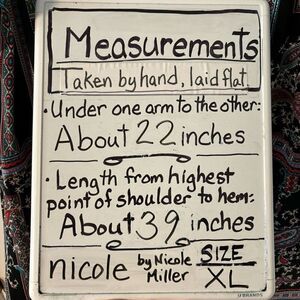 Measurements
Taken by hand, laid flat
• Under one arm to the other:
About 22 inches
• Length from highest
point of shoulder to hem:
About 39 inches
nicole by Nicole Miller SIZE XL
U BRANDS